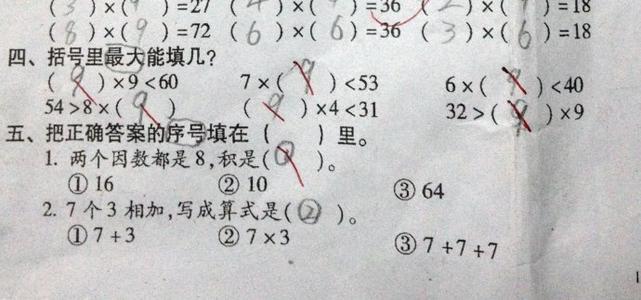 (3)×(9)=27 (4)×(9)=36 (2)×(9)=18
(8)×(9)=72 (6)×(6)=36 (3)×(6)=18
四、括号里最大能填几?
(9)×9<60 7×(9)<53 6×(9)<40
54>8×(9) (9)×4<31 32>(9)×9
五、把正确答案的序号填在( )里。
1. 两个因数都是8,积是( )。
①16 ②10 ③64
2. 7个3相加,写成算式是(②)。
①7+3 ②7×3 ③7+7+7
1